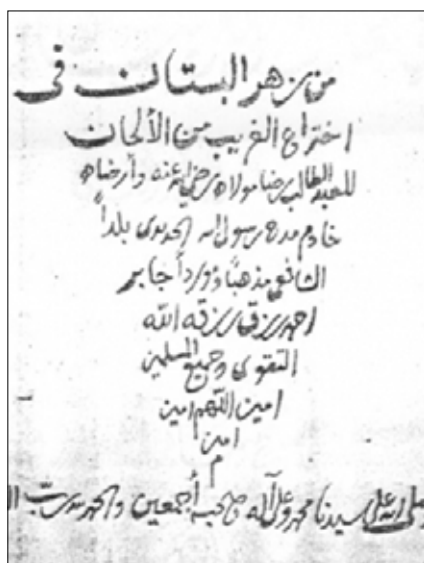 من زهر البستان في
اختراع الغريب من الألحان
للعبد الطالب رضا مولاه رضي الله عنه وأرضاه
خادم مدح رسول الله بلداً
الشافعي مذهباً جابر
احمد رزق رزقه الله
التقوى وجميع المسلمين
امين اللهم امين
امين
م
وصلى الله على سيدنا محمد وعلى آله وصحبه أجمعين والحمد لله رب